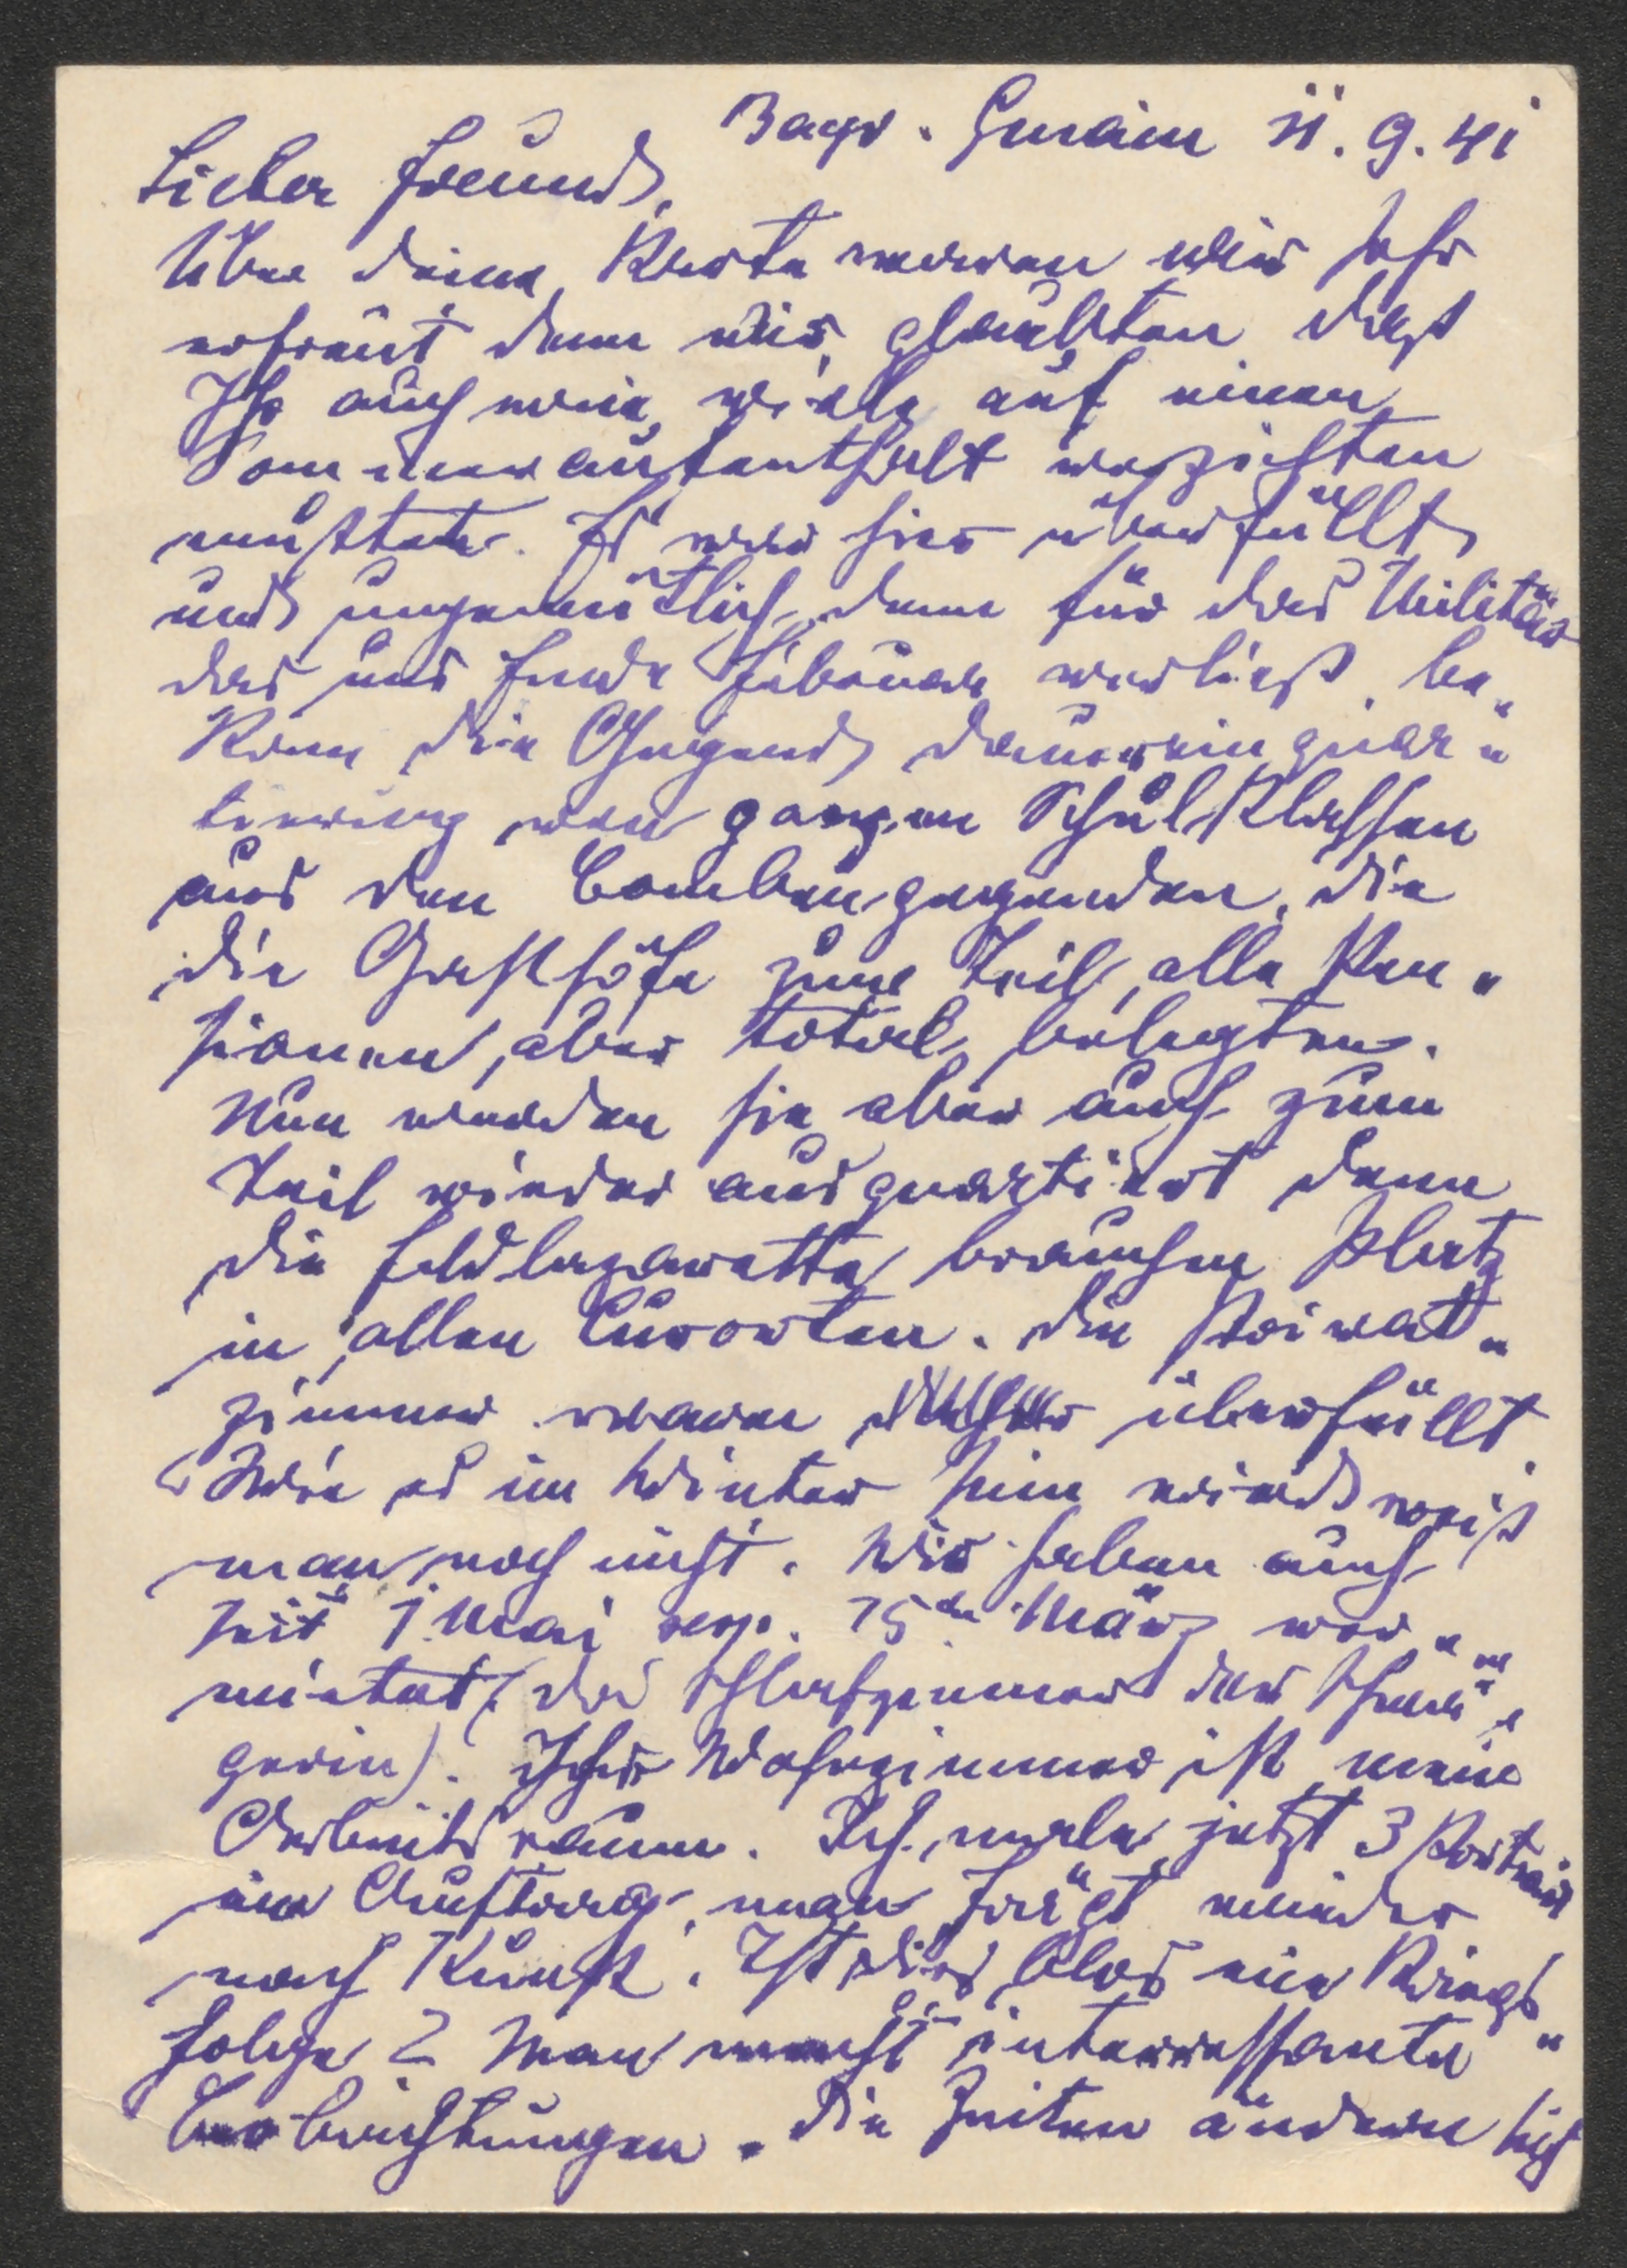 Bayr. Gmain 11.9.41
Lieber Freund,
Über deine Karte waren wir sehr
erfreut denn wir glaubten daß
Ihr auch wie viele auf einen
Sommeraufenthalt verzichten
mußtet. Es war hier überfüllt
und ungemütlich denn für das Militär
das uns Ende Februar verließ be„
kam die Gegend Dauereinquar„
tierung von ganzen Schulklassen
aus den Bombengegenden, die
die Gasthöfe zum Teil, alle Pen„
sionen, aber total belegten.
Nun werden sie aber auch zum
Teil wieder ausquartiert denn
die Feldlazarette brauchen Platz
in allen Curorten. Die Privat„
zimmer waren überfüllt.
Wie es im Winter sein wird weiß
man noch nicht. Wir haben auch
seit 1 Mai resp. 15ten März ver„
mietet (das Schlafzimmer der Schwie„
gerin). Ihr Wohnzimmer ist mein
Arbeitsraum. Ich male jetzt 3 Porträts
im Auftrag, man frägt wieder
nach Kunst. Ist dies blos eine Kriegs„
folge? Man macht interressante
Beobachtungen. Die Zeiten ändern sich